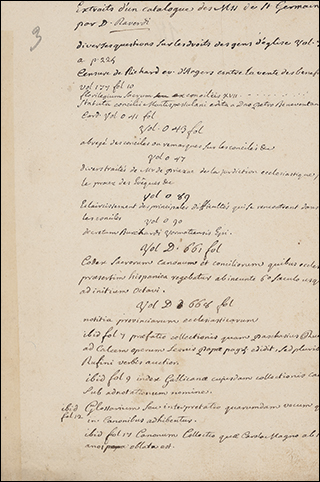 3
Extraits d'un catalogue des Mss de St Germain
par D.
diverses questions sur les droits des gens d'église Vol.
a p 224
Censure de Richard ou d'Rogers contre la vente des benef
vol 177 fol 10
florilegium sacrum conciliis XVII
Statuta concilii Montispessulani edita a Dno Petro Beneventan
Card. Vol 0 41 fol
Vol. 0 43 fol
abregé des conciles ou remarques sur les conciles de
Vol 0 47
divers traités de Mr de sur la juridiction ecclesiastique,
le procez des Evêques de
Vol 0 89
Eclaircissement des principales difficultés qui se rencontrent dans
les conciles
Vol 0 90
decretum Burchardi Vormatiensis Epi.
Vol D. 661 fol
Codex sacrorum canonum et conciliorum quibus eccles
praesertim hispanica regebatur ab ineunte 6° saeculo usq
ad initium octavi.
Vol D 668 fol
notitia provinciarum ecclesiasticarum
ibid fol 7 prefatio collectionis quam paschasius
ad Calcem operum Leonis papae edidit sed pluribus
Rufini verbis auctior.
ibid fol 9 index Gallicanae cujusdam collectionis can
Sub adnotationum nomine.
ibid fol 12. Glossarium seu interpretatio quarumdam vocum q
in Canonibus adhibentur.
ibid fol 17 Canonum Collectio quae Carolo Magno ab
ano papa oblata est.